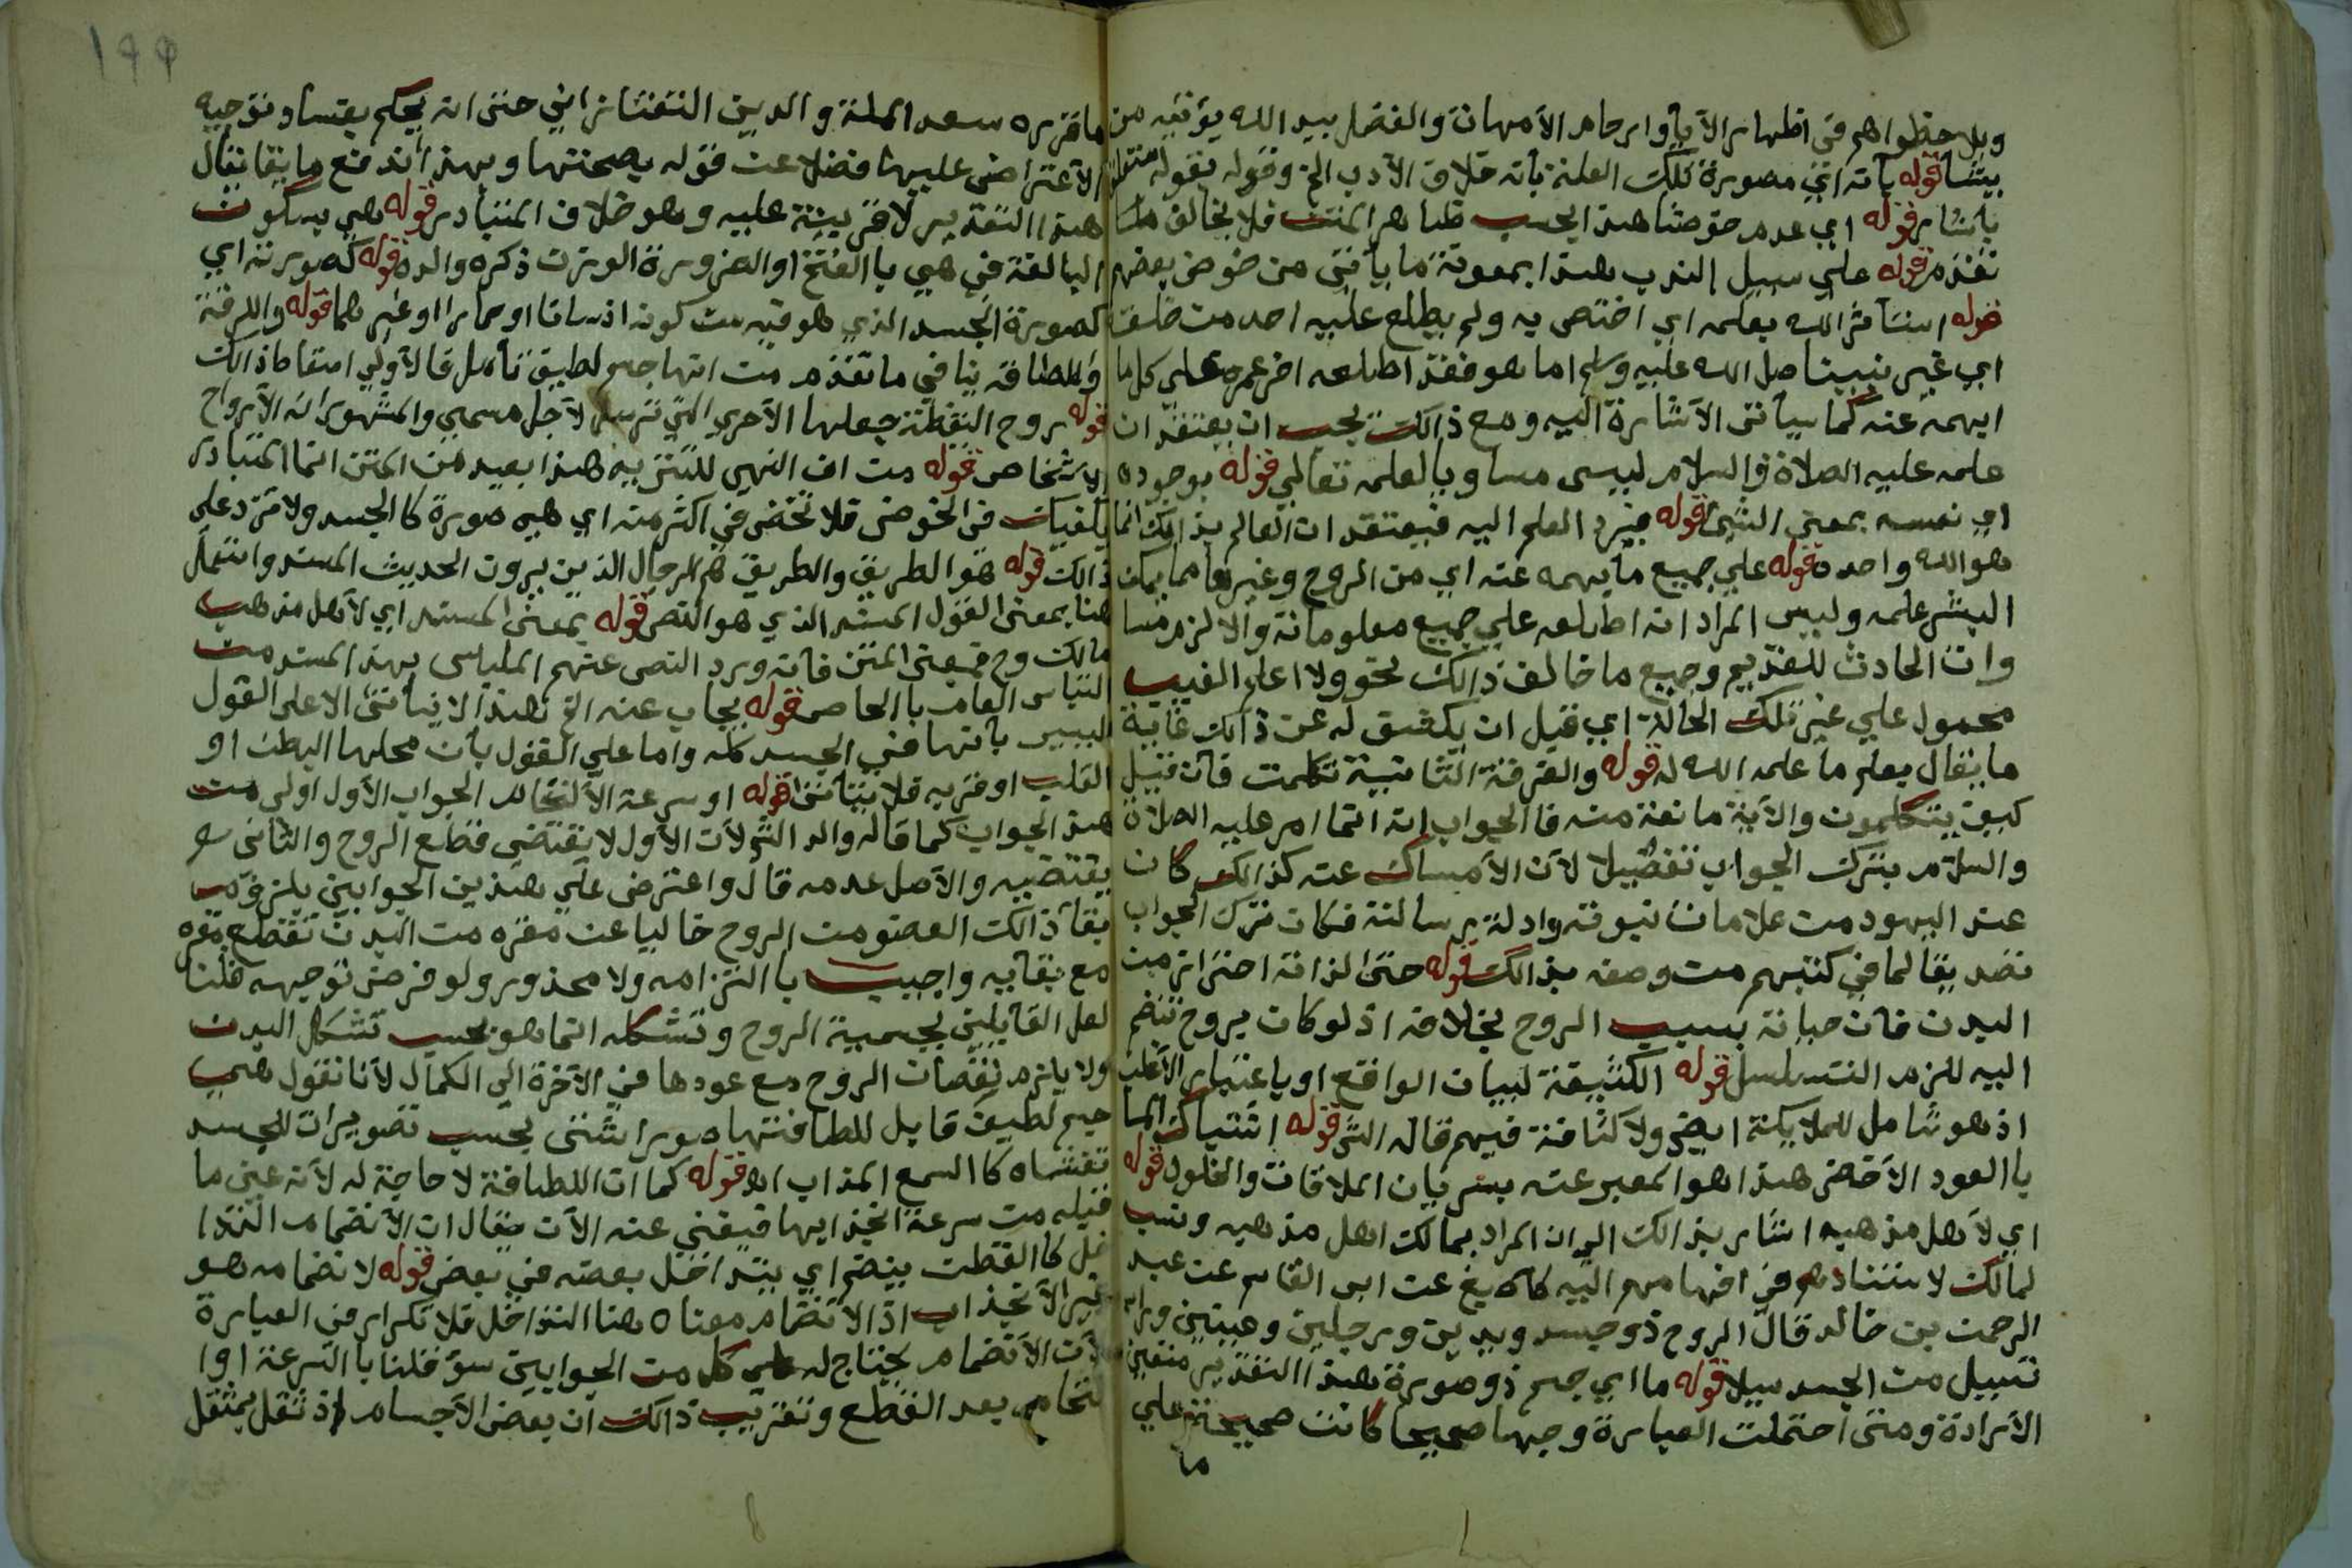 ويلاحظوا هم في اظهار الآبآ وارحام الامهات والفضل بيد الله يؤتيه من
يشآ قوله بأنه اي مصورة تلك العلة بأنه خلاف الأدب الخ وقوله بقوله متعلق
بأشار قوله اي عدم خوضنا هذا بحسب ظاهر المتن فلا يخالف ما
تقدم قوله علي سبيل الندب هذا بمعونة ما يأتي من خوض بعضهم
قوله استأثر الله بعلمه اي اختص به ولم يطلع عليه احد من خلقه
اي غير نبينا صل الله عليه وسلم اما هو فقد اطلعه اخر عمره علي كل ما
ابهمه عنه كما سيأتي الاشارة اليه ومع ذالك يجب ان يعتقد ان
علمه عليه الصلاة والسلام ليسى مساويا لعلمه تعالي قوله بوجوده
اي نفسه بمعني الشئ قوله فيرد العلم اليه فيعتقد ان العالم بذالك انما
هو الله واحده قوله علي جميع ما يهمه عنه اي من الروح وغيرها مما يمكن
البشر علمه وليس المراد انه اطلعه علي جميع معلوماته والا لزم مسا
وات الحادث للقديم وجميع ما خالف ذالك نحو ولا اعلم الغيب
محمول علي غير تلك الحالة اي قيل ان يكشق له عن ذالك غاية
ما يقال يعلم ما علمه الله له قوله والفرقة الثانية تكلمت فان قيل
كيف يتكلمون والآية مانعة منه فا الجواب انه انما امر عليه الصلاة
والسلام بترك الجواب تفصيلا لان الامساك عنه كذالك كان
عند اليهود من علامات نبوته وادلة رسالته فكان ترك الجواب
تصديقا لما في كتبهم من وصفه بذالك قوله حتى لذاته احترازا من
البدن فان حياته بسبب الروح بخلافه اذ لو كان بروح تنضم
اليه للزم التسلسل قوله الكثيفة لبيان الواقع او باعتبار الاغلب
اذ هو شامل للملايكة ايضى ولا كثافة فيهم قاله الش قوله اشتباك الما
با العود الأخضر هذا هو المعبر عنه بسريان الملاقات والخلول قوله
اي لأهل مذهبه اشار بذالك الي ان المراد بمالك اهل مذهبه ونسب
لمالك لاستنادهم في افهامهم اليه كا الاصبغ عن ابي القاسم عن عبد
الرحمن بن خالد قال الروح ذو جسد ويدين ورجلين وعينين وراس
تسيل من الجسد سيلا قوله ما اي جسم ذو صورة هذا التقدير متعين
الارادة ومتى احتملت العبارة وجها صحيحا كانت صحيحة علي
ما
١٩٩
ما قرره سعد الملة والدين التفتازاني حتى انه يحكم بفساد توجيه
الاعتراضى عليها فضلا عن قوله بصحتها وبهذا اندفع ما يقال
هذا التقدير لا قرينة عليه وهو خلاف المتبادر قوله هي بسكون
اليا لغة في هيي با الفتخ او الضرورة الوزن ذكره والده قوله كصورته اي
كصورة الجسد الذي هو فيه من كونه انسانا او حمارا او غيرهما قوله واللرقة
واللطافة ينافي ما تقدم من انها جسم لطيق تأمل فالاولي اسقاط ذالك
قوله روح اليقظة جعلها الاخري التي ترسل لاجل مسمي والمشهور انه الارواح
لاشخاص قوله من ان النهي للتنزيه هذا بعيد من المتن انما المتبادر
يكفيك في الخوض فلا تخض في اكثر منه اي هي صورة كا الجسد ولا تزد علي
ذالك قوله هو الطريق والطريق هم الرجال الذين يروون الحديث المسند واستعمل
هنا بمعنى القول المسند الذي هو النص قوله بمعنى المسند اي لاهل مذهب
مالك وح فمعني المتن فانه ورد النص عنهم الملباس بهذا المسند من
التباس العام با الخاص قوله يجاب عنه الخ هذا لا يتأتى الا علي القول
الببير بانها في الجسد كله واما علي القول بان محلها البطن او
القلب او قربه فلا يتأتى قوله او سرعة الالتحام الجواب الاول اولي من
هذا الجواب كما قاله والد الش لان الاول لا يقتضي قطع الروح والثاني
يقتضيه والاصل عدمه قال واعترض علي هذين الجوابين يلزم
بقا ذالك العضو من الروح خاليا عن مقره من البدن تقطع مقره
مع بقايه واجيب با التزامه ولا محذور ولو فرض توجيهه قلنا
لعل القايلين بجسمية الروح وتشكله انما هو بحسب تشكل البدن
ولا يلزم نقصان الروح مع عودها في الآخرة الي الكمال لأنا نقول هي
جسم لطيف قابل للطافتها صورا شتى بحسب تصويرات للجسد
تغشاه كا السمع المذاب اه قوله كما ان اللطافة لا حاجة له لانه عين ما
قبله من سرعة انجذابها فيغني عنه الان يقال ان الانضمام التدا
خل كا القطن ينضم اي يتداخل بعضه في بعض قوله لانضمامه هو
غير الانجذاب اذ الانضمام معناه هنا التداخل فلا تكرار في العبارة
لان الانضمام يحتاج له علي كل من الجوابين سوٓ قلنا با السرعة او ا
لتحام بعد القطع وتقريب ذالك ان بعض الاجسام اذ تقل بمثقل